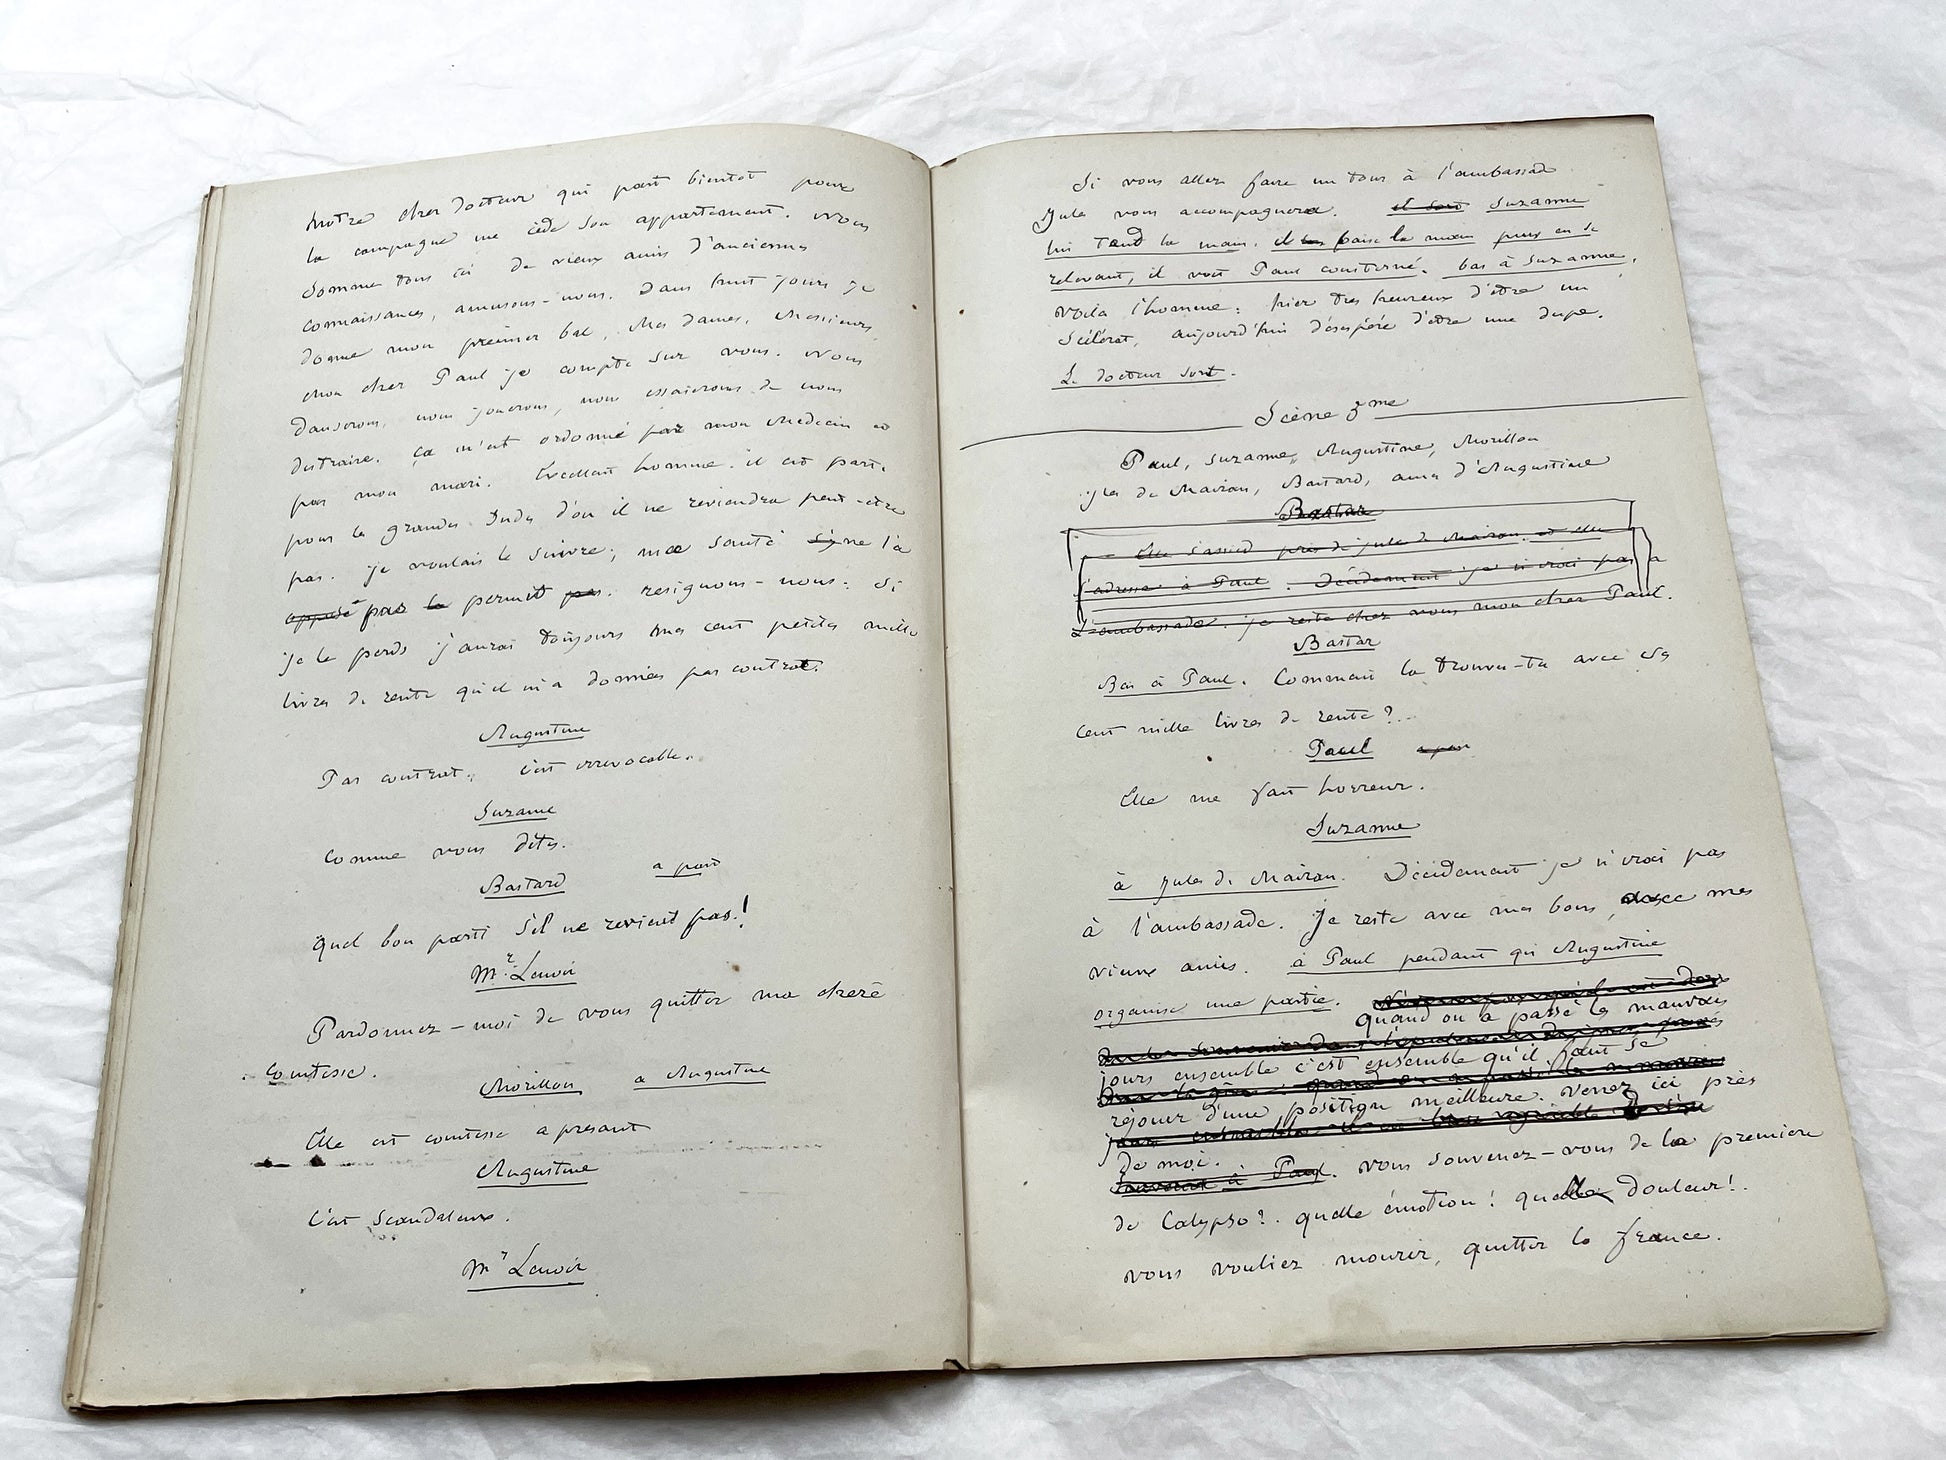 Notre cher docteur qui part bientot pour
la campagne me cède son appartement. Nous
Somme tous ici de vieux amis d'anciennes
connaissances, amusons-nous. Dans huit jours je
donne mon premier bal, Mes dames, Messieurs,
mon cher Paul je compte sur vous. Nous
danserons, nous jouerons, nous essaierons de nous
distraire. Ça m'est ordonné par mon Medecin et
par mon mari. Excellent homme. il est parti
pour les grandes Indes d'ou il ne reviendra peut-etre
pas. je voulais le suivre; ma santé ne l'a
opposé pas le permit pas. resignons-nous. Si
je le perds j'aurai toujours mes cent petites mille
livres de rente qu'il m'a données par contrat.
Augustine
Par contrat. C'est irrevocable.
Suzanne
Comme vous dites.
Bastard a part
Quel bon parti s'il ne revient pas!
Mr Lenoir
Pardonnez-moi de vous quitter ma cherè
comtesse.
Morillon a Augustine
Elle est comtesse a present
Augustine
C'est scandaleux.
Mr Lenoir
Si vous allez faire un tour à l'ambassade
Jules vous accompagnera. il sort Suzanne
lui tend la main. il baise la main puis en se
relevant, il voit Paul consterné. bas à Suzanne.
voila l'homme: hier tres heureux d'etre un
Scélérat, aujourd'hui désespéré d'etre une dupe.
Le docteur sort.
Scène 3me
Paul, Suzanne, Augustine, Morillon
Jles de Mairan, Bastard, amis d'Augustine
Bastar
Elle s'assied près de jules de Mairan. et elle
s'adresse à Paul. Décidement je n'irai pas a
L'ambassade. je reste chez vous mon cher Paul.
Bastar
Bas à Paul. Comment la trouves-tu avec ses
cent mille livres de rente?..
Paul a part
Elle me fait horreur.
Suzanne
à Jules de Mairan. Décidement je n'irai pas
à l'ambassade. Je reste avec mes bons, mes
vieux amis. à Paul pendant qu'Augustine
organise une partie.
Quand on a passé les mauvais
jours ensemble c'est ensemble qu'il faut se
réjouir d'une position meilleure. Venez ici près
de moi.
à Paul. Vous souvenez-vous de la premiere
de Calypso?. quelle émotion! quelle douleur!.
vous vouliez mourir, quitter la france.